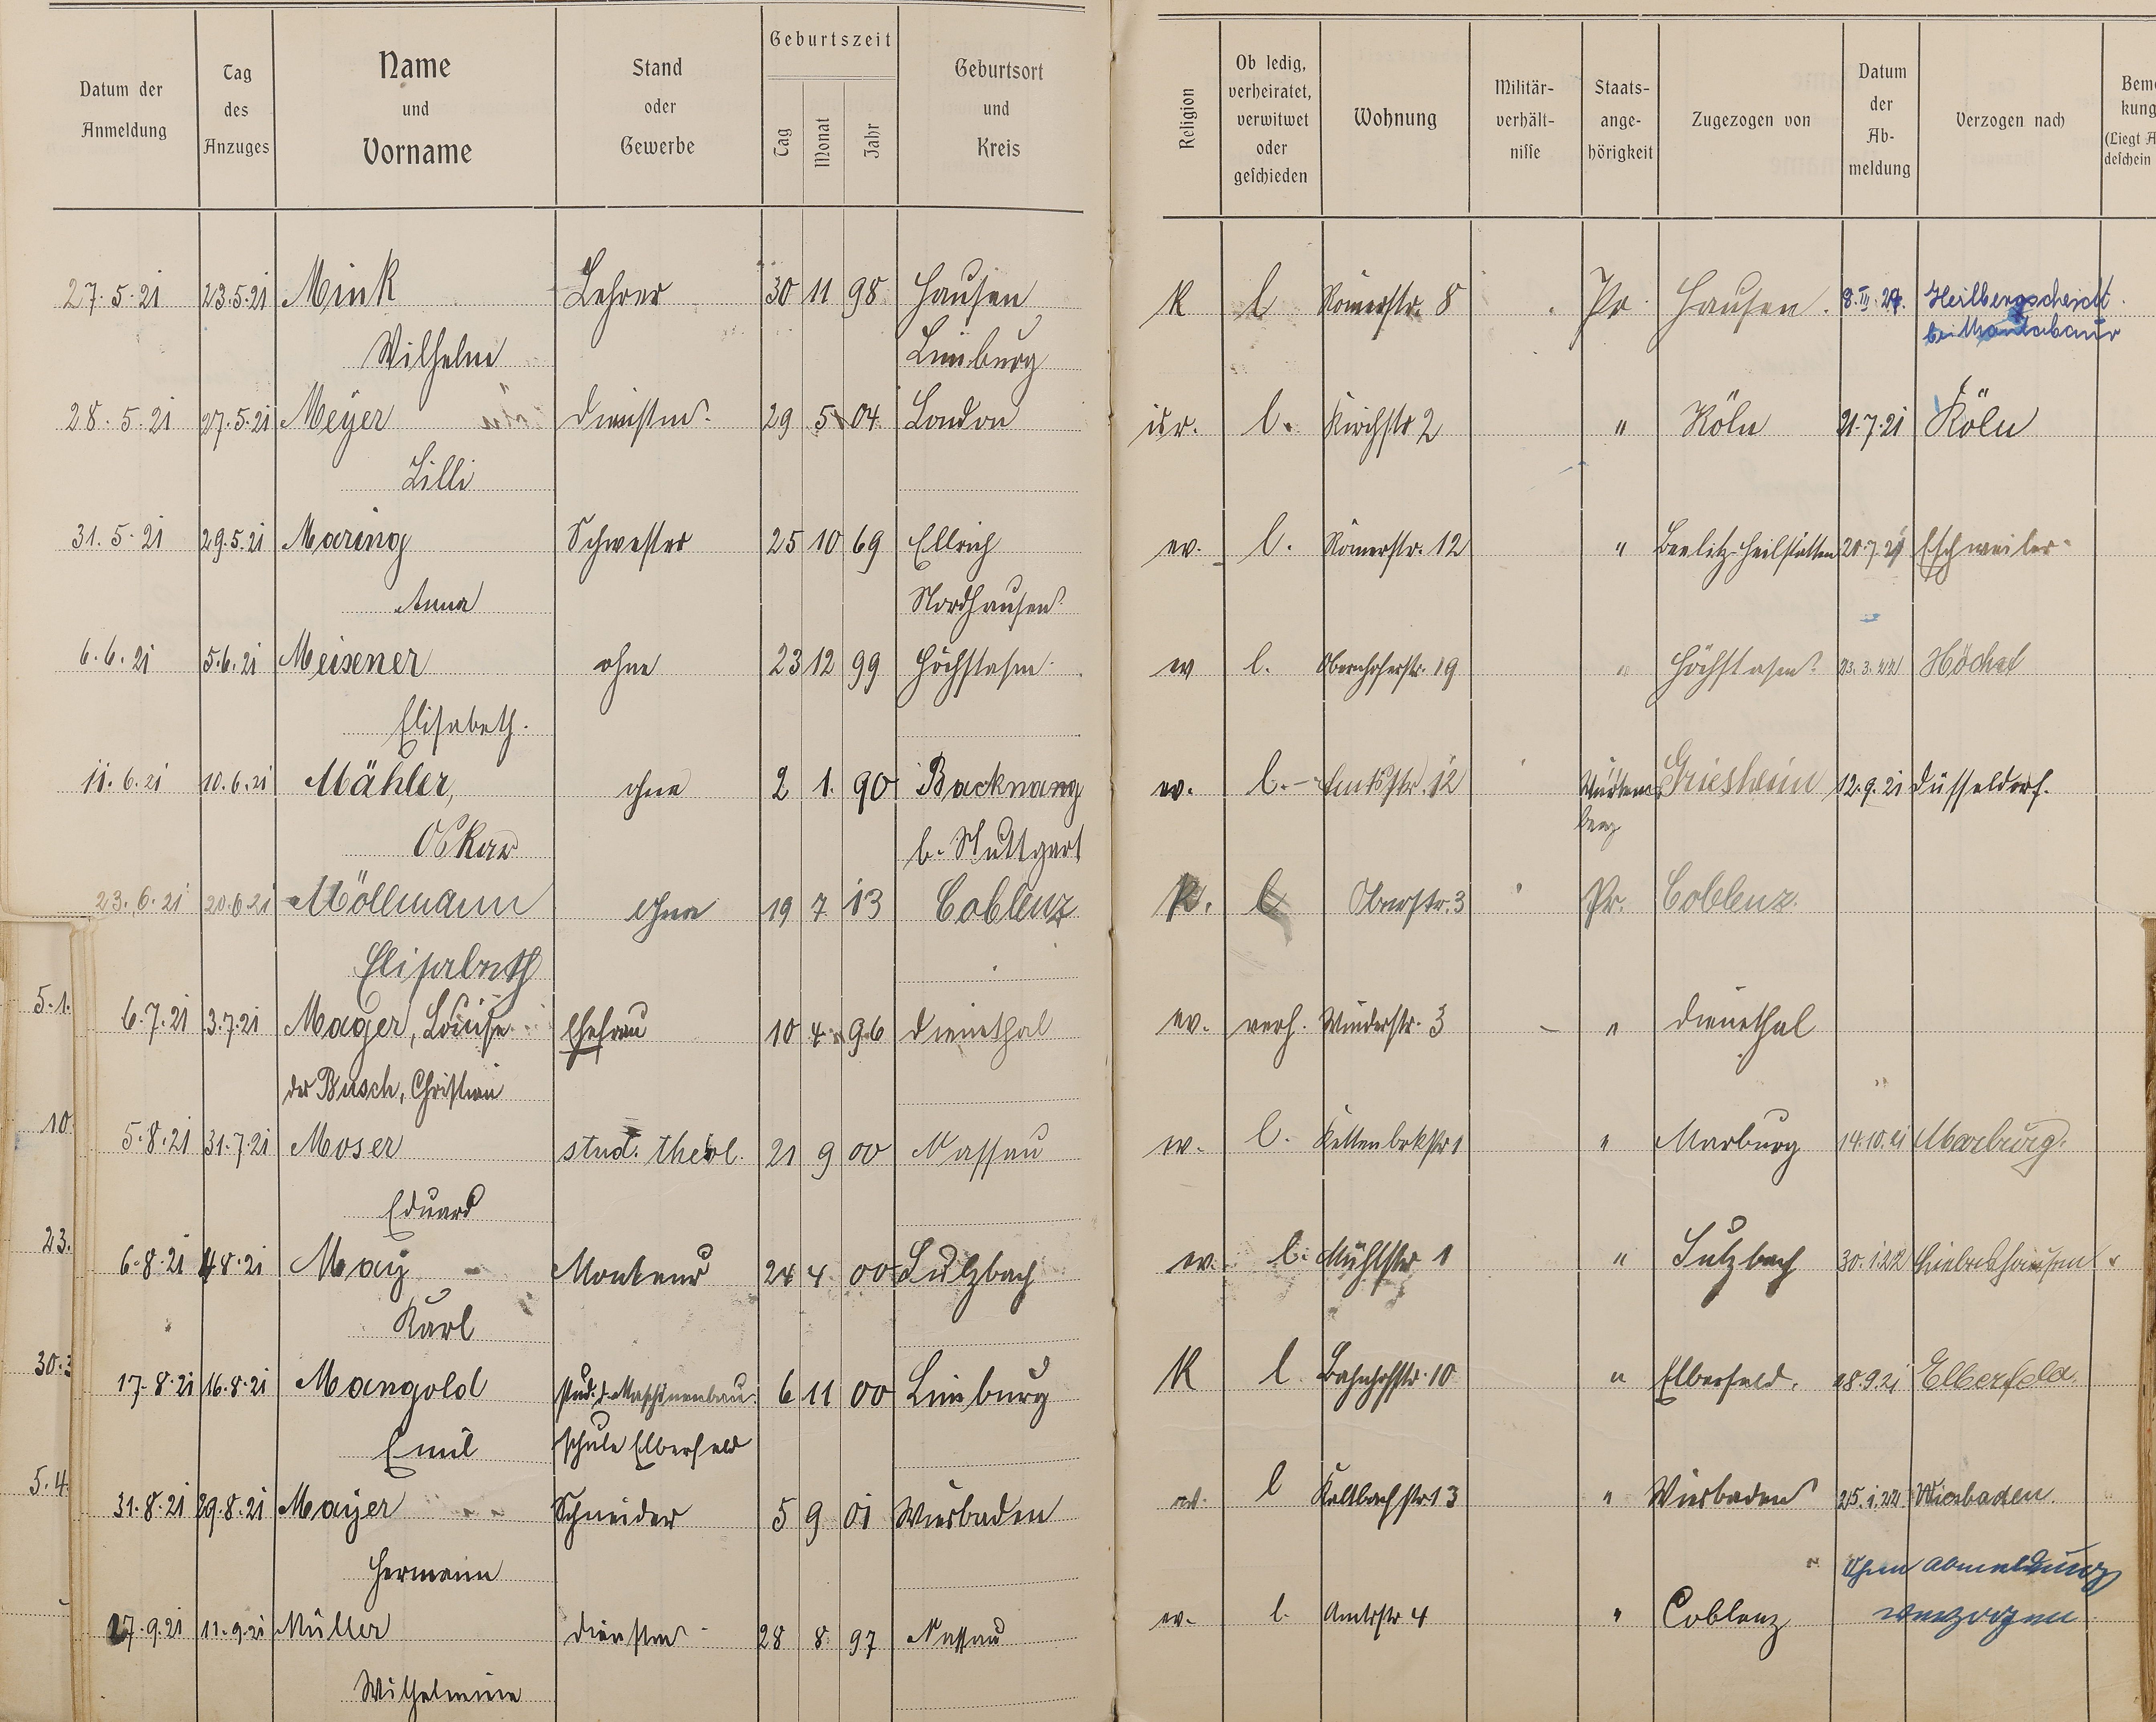 Datum der Anmeldung | Tag des Anzuges | Name und Vorname | Stand oder Gewerbe | Geburtszeit Tag Monat Jahr | Geburtsort und Kreis | Religion | Ob ledig, verheiratet, verwitwet oder geschieden | Wohnung | Militär-verhält-nisse | Staats-ange-hörigkeit | Zugezogen von | Datum der Ab-meldung | Verzogen nach | Bem kung (Liegt A deschein
27.5.21 23.5.21 Mink Lehrer 30 11 98 Hausen k l Römerstr. 8 Pr. Hausen. 8.III.24. Heilbergscheidt
Wilhelm Limburg bei Montabaur
28.5.21 27.5.21 Meyer Dienstm. 29 5 04 London isr. l. Kirchstr 2 " Köln 21.7.21 Köln
Lilli
31.5.21 29.5.21 Maring Schwester 25 10 69 Ellrich ev. l. Römerstr. 12 " Beelitz-Heilstätten 20.7.21 Eschweiler
Anna Nordhausen
6.6.21 5.6.21 Meisener ohne 23 12 99 Höchst a/m. ev l. Obernhoferstr. 19 " Höchst a/m. 23.3.22 Höchst
Elisabeth.
11.6.21 10.6.21 Mähler, ohne 2 1. 90 Backnang ev. l. Amtsstr. 12 Würtem- Griesheim 12.9.21 Düsseldorf.
Oskar b. Stuttgart berg
23.6.21 20.6.21 Möllmann ohne 19 7 13 Coblenz k. l Oberstr. 3 Pr. Coblenz.
Elisabeth
5.1.
6.7.21 3.7.21 Mager, Louise Ehefrau 10 4 96 Dienethal ev. verh. Windenstr. 3 " Dienethal
der Busch, Christian
10.
5.8.21 31.7.21 Moser stud. theol. 21 9 00 Nassau ev. l. Kettenbrkstr 1 " Marburg 14.10.21 Marburg.
Eduard
23.
6.8.21 4.8.21 May Monteur 24 4 00 Sulzbach ev. l. Mühlstr 1 " Sulzbach 30.1.22
Karl
30.3
17.8.21 16.8.21 Mangold stud. d. Maschinenbau- 6 11 00 Limburg k l Bahnhofstr. 10 " Elberfeld. 28.9.21 Elberfeld.
Emil schule Elberfeld
5.4.
31.8.21 29.8.21 Mayer Schneider 5 9 01 Wiesbaden ev. l Kaltbachstr 13 " Wiesbaden 25.1.22 Wiesbaden.
Hermann
Ohne Abmeldung
17.9.21 11.9.21 Müller Dienstm. 28 8 97 Nassau ev. l. Amtsstr 4 " Coblenz verzogen
Wilhelmine